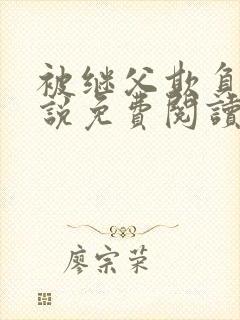 被继父欺负
說免費閱讀
廖宗荣